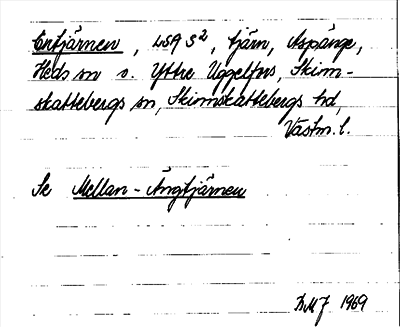 Ertjärnen, LSA S2, tjärn, Aspänge,
Heds sn o. Yttre Uggelfors, Skinn-
skattebergs sn, Skinnskattebergs hd,
Västm. l.
Se Mellan-Ängtjärnen
BMJ 1969